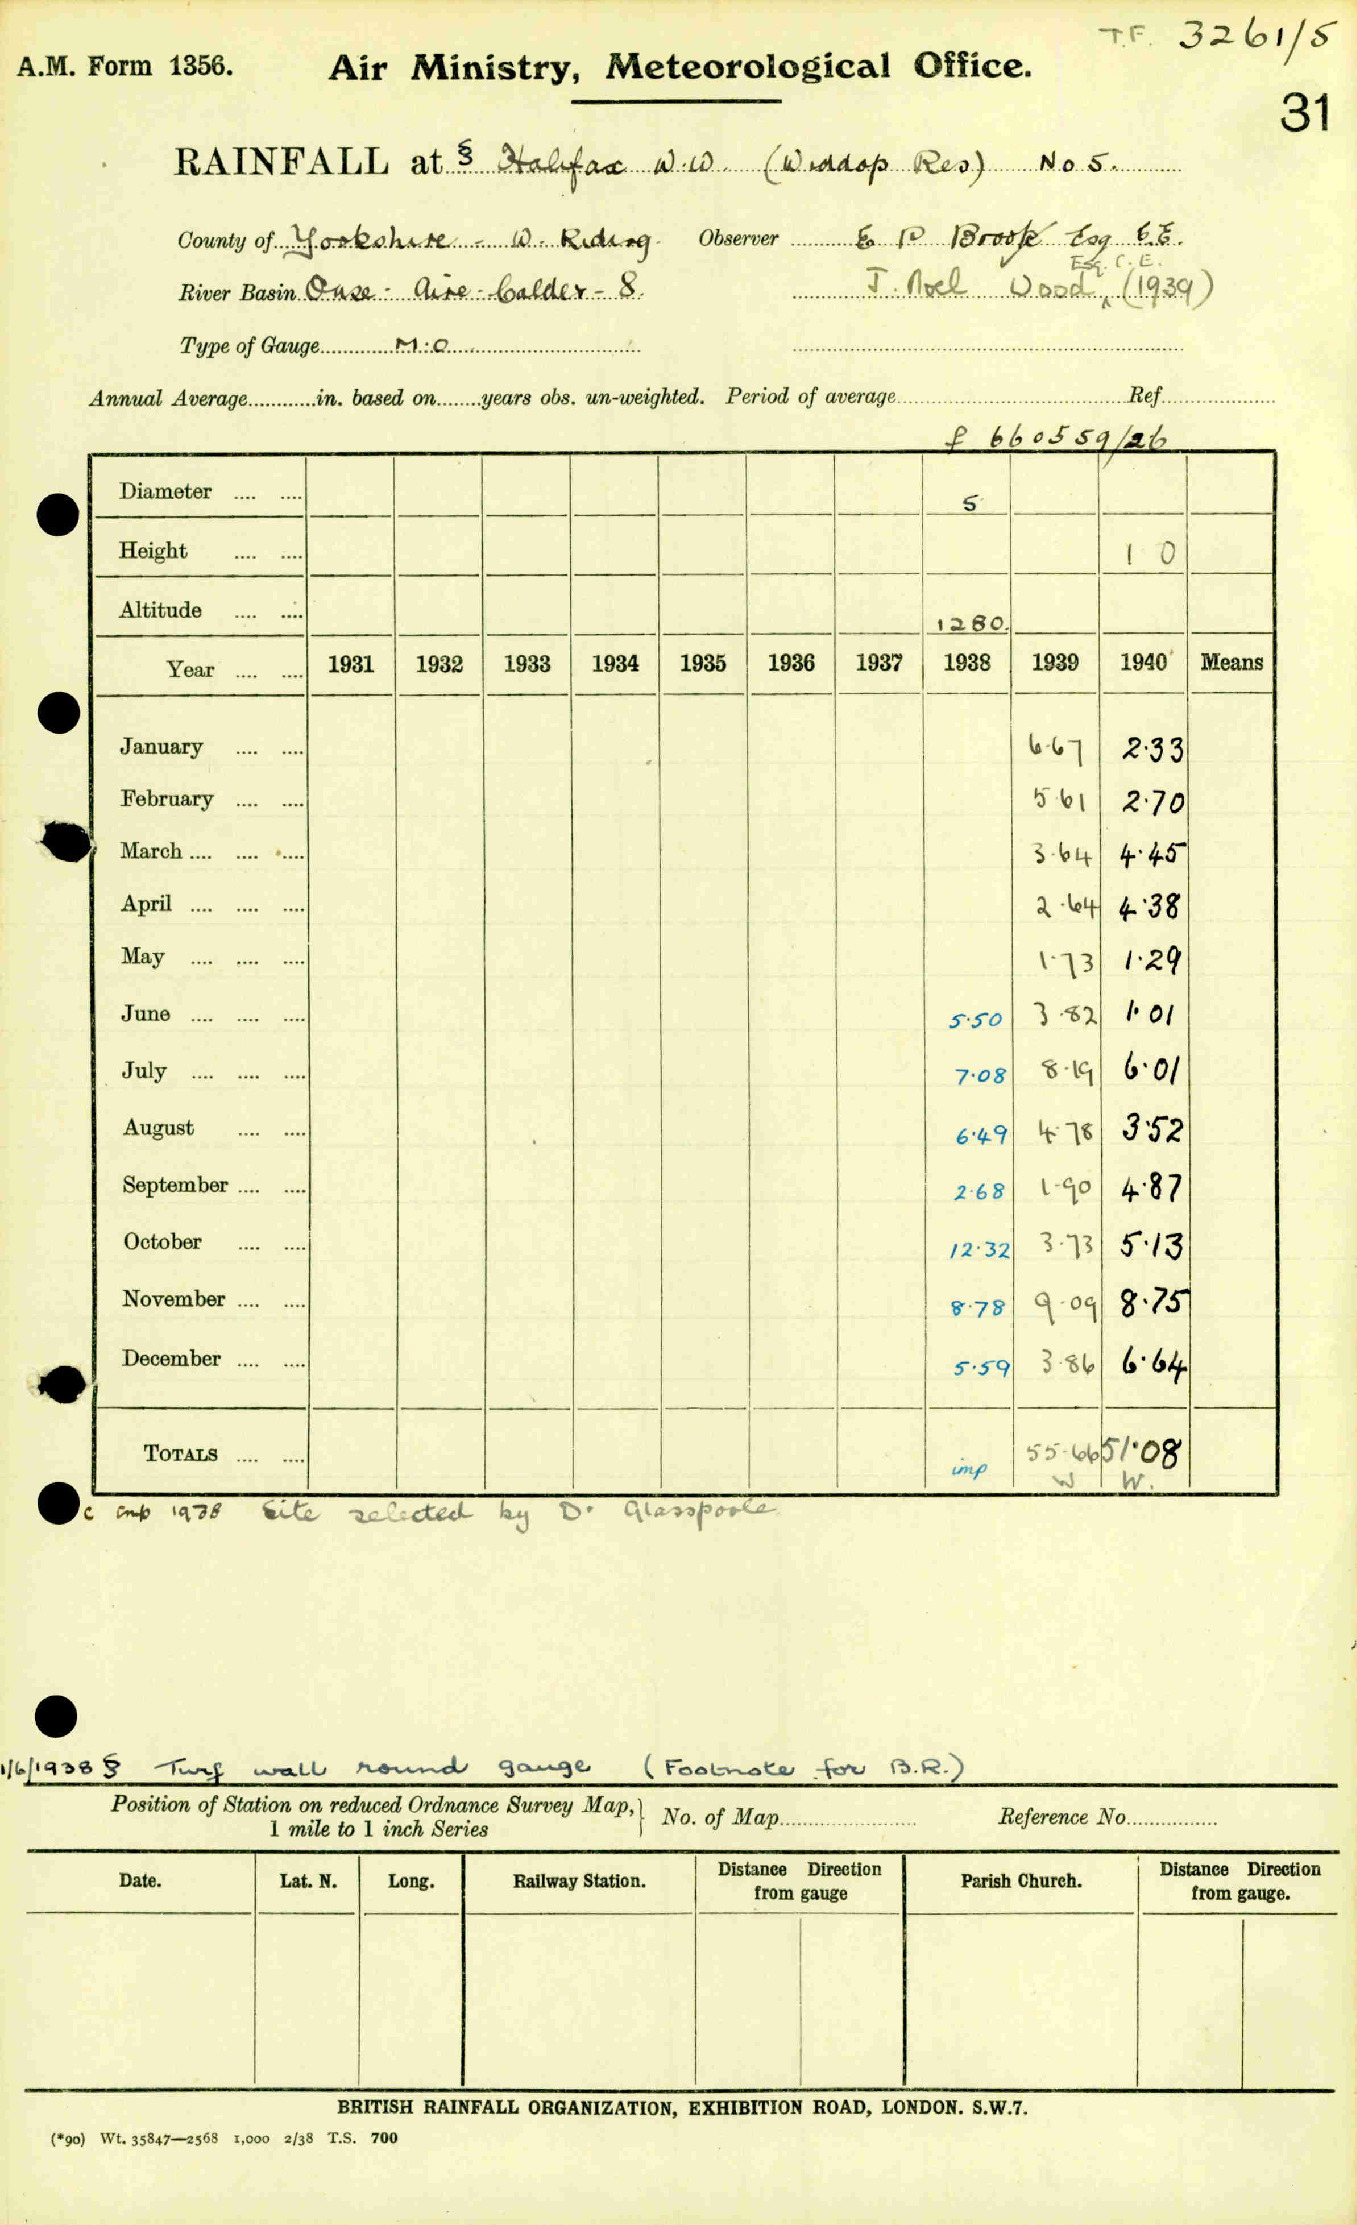 T.F. 3261/5
A.M. Form 1356. Air Ministry, Meteorological Office.
31
RAINFALL at § Halifax W.W. (Widdop Res) No 5.
County of Yorkshire - W. Riding. Observer E P Brook Esq C.E.
River Basin Ouse - Aire - Calder - 8. J. Noel Wood Esq. C.E. (1939)
Type of Gauge M.O
Annual Average in. based on years obs. un-weighted. Period of average Ref.
f 660559/26
Diameter 5
Height 1 0
Altitude 1280.
Year 1931 1932 1933 1934 1935 1936 1937 1938 1939 1940 Means
January 6.67 2.33
February 5.61 2.70
March 3.64 4.45
April 2.64 4.38
May 1.73 1.29
June 5.50 3.82 1.01
July 7.08 8.19 6.01
August 6.49 4.78 3.52
September 2.68 1.90 4.87
October 12.32 3.73 5.13
November 8.78 9.09 8.75
December 5.59 3.86 6.64
TOTALS imp 55.66 51.08
W W.
c imp 1938 Site selected by Dr Glasspoole
1/6/1938 § Turf wall round gauge (Footnote for B.R.)
Position of Station on reduced Ordnance Survey Map, 1 mile to 1 inch Series } No. of Map Reference No.
Date. Lat. N. Long. Railway Station. Distance Direction from gauge Parish Church. Distance Direction from gauge.
BRITISH RAINFALL ORGANIZATION, EXHIBITION ROAD, LONDON. S.W.7.
(*90) Wt. 35847—2568 1,000 2/38 T.S. 700